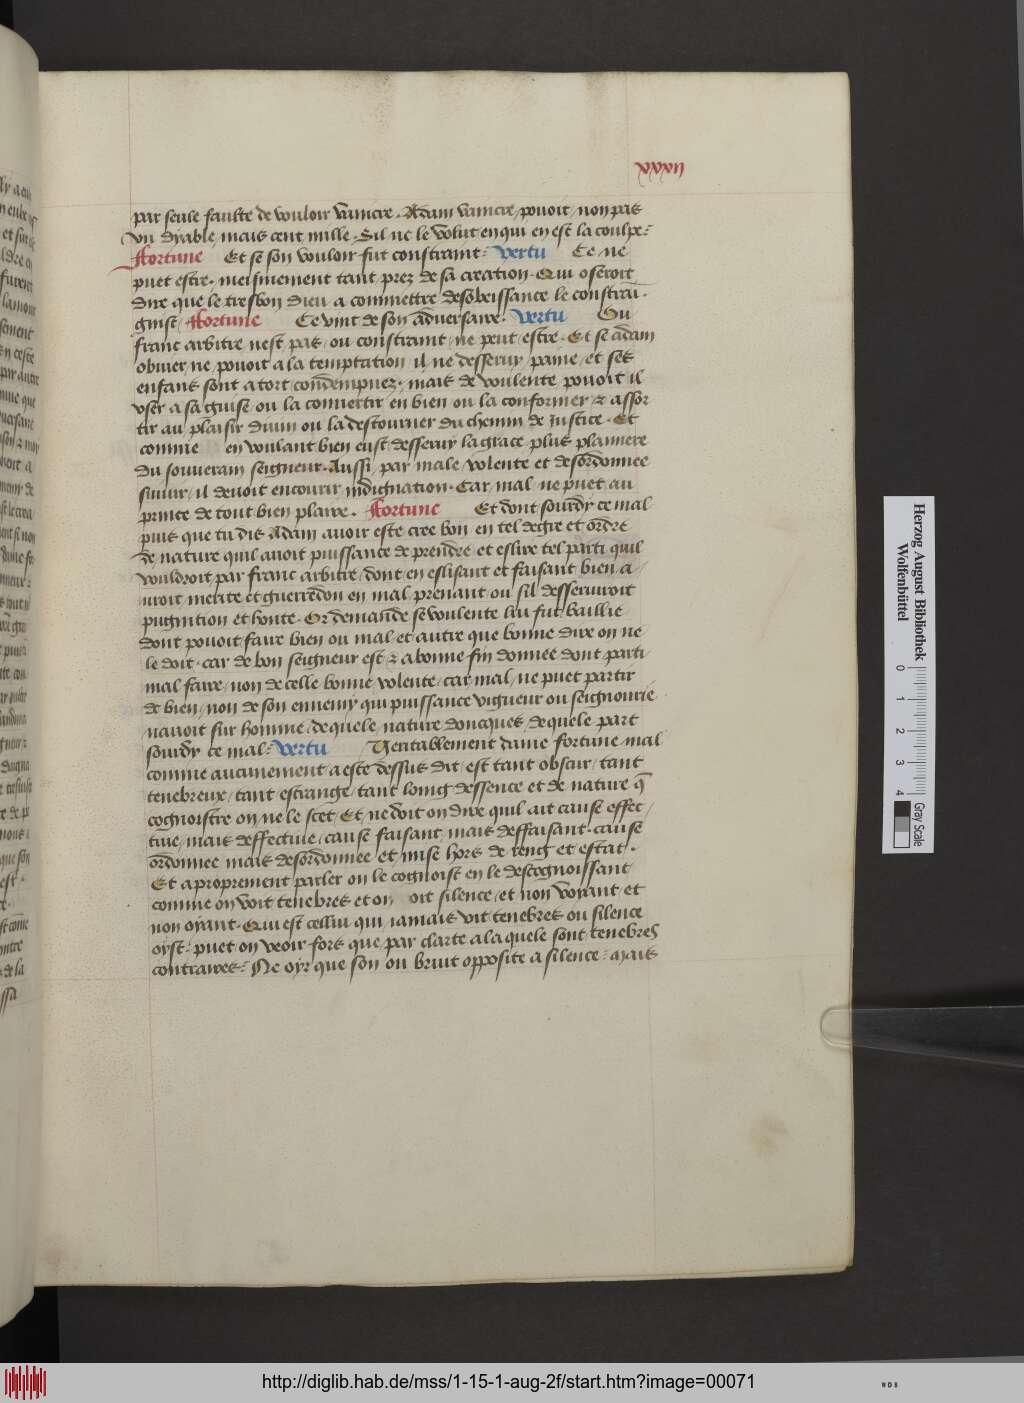 xxxii
par seule faulte de vouloir vaincre. Adam vaincre, pouoit, non pas
vn dyable mais cent mille. Sil ne le volut enqui en est la coulpe:
Fortune Et se son vouloir fut constraint: Vertu Ce ne
puet estre. meismement tant prez de sa creation. Qui oseroit
dire que le tresbon dieu a commettre desobeissance le constrai
gnist, Fortune Ce vint de son aduersaire. Vertu Du
franc arbitre nest pas, ou constraint, ne peut estre. Et se adam
obuier, ne, pouoit a la temptation il, ne desseruy paine, et ses
enfans sont a tort condempnez. mais de voulente pouoit il
vser a sa guise, ou la conuertir en bien ou la conformer & assor
tir au plaisir diuin ou la destourner du chemin de Justice. Et
comme en voulant bien eust desseruir la grace plus planiere
du souuerain seigneur. Aussi, par male, volente et desordonnee
suiuir, il deuoit encourir indignation. Car, mal, ne puet au
prince de tout bien plaire. Fortune Et dont sourdy ce mal
puis que tu dis Adam auoir este cree bon en tel degre et ordre
de nature quil auoit puissance de prendre et eslire tel parti quil
vouldroit par franc arbitre, dont en eslisant et faisant bien a
uroit merite et guerredon en mal, prenant ou sil desseruiroit
pugnition et honte. Or demande se voulente luy fut baillie
dont pouoit faire bien ou mal et autre que bonne dire on ne
le doit. car de bon seigneur est & a bonne fin donnee dont parti
mal faire, non de celle bonne volente, car mal, ne puet partir
de bien, non de son ennemy qui puissance vigueur ou seignourie
nauoit sur homme, de quele nature doncques, de quele part
sourdy ce mal: Vertu Veritablement dame fortune mal
comme aucunement a este dessus dit est tant obscur, tant
tenebreux, tant estrange, tant loing dessence et de nature q̄
cognoistre on ne le scet, Et, ne doit on dire quil ait cause effec
tiue, mais deffectiue, cause faisant, mais deffaisant. cause
ordonnee mais desordonnee et mise hors de reng et estat.
Et a proprement parler on le cognoist en le descognoissant
comme on voit tenebres et on oit silence, et non voyant et
non oyant. Qui est cellui qui iamais vit tenebres ou silence
oyst: puet on veoir fors que par clarte a la quele sont tenebres
contraires: Ne oyr que son ou bruit opposite a silence: Mais
Herzog August Bibliothek
Wolfenbüttel
0 1 2 3 4
Gray Scale
http://diglib.hab.de/mss/1-15-1-aug-2f/start.htm?image=00071